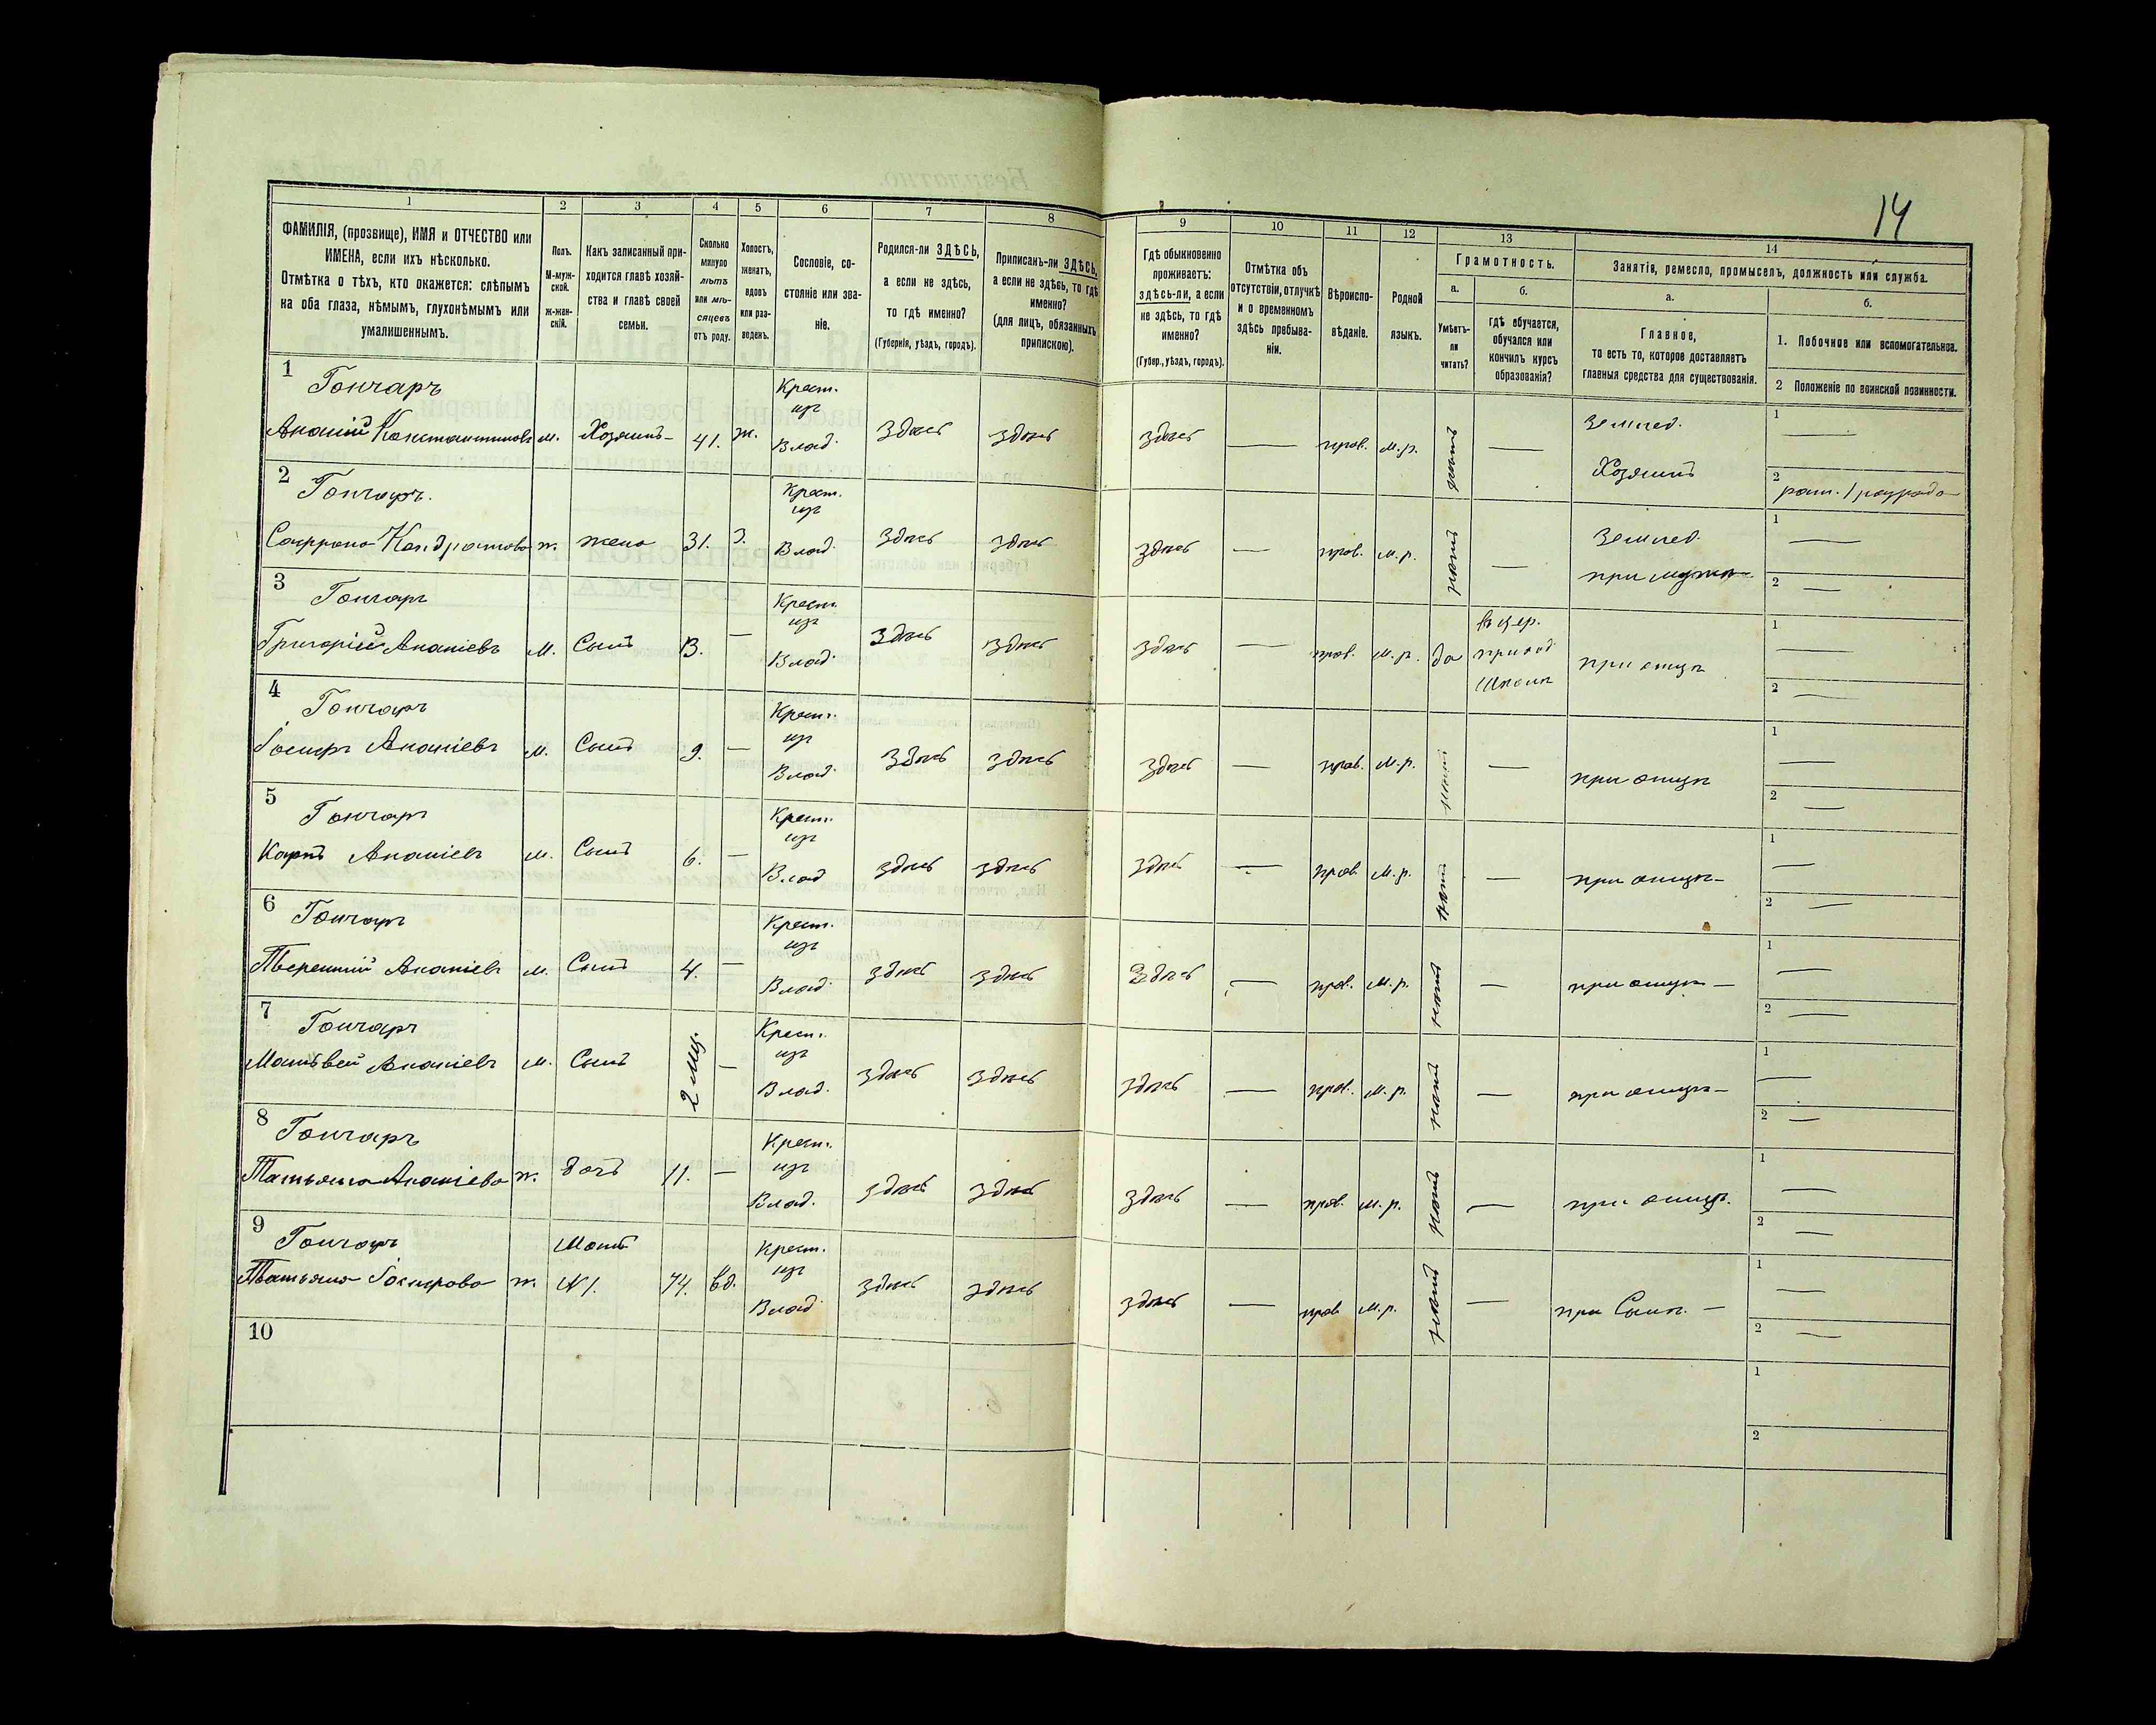 14
1
2
3
4
5
6
7
8
9
10
11
12
13
14
ФАМИЛІЯ, (прозвище), ИМЯ и ОТЧЕСТВО или
ИМЕНА, если ихъ нѣсколько.
Отмѣтка о тѣхъ, кто окажется: слѣпымъ
на оба глаза, нѣмымъ, глухонѣмымъ или
умалишеннымъ.
Полъ.
М-муж-
ской.
Ж-жен-
скій.
Какъ записанный при-
ходится главѣ хозяй-
ства и главѣ своей
семьи.
Сколько
минуло
лѣтъ
или мѣ-
сяцевъ
отъ роду.
Холостъ,
женатъ,
вдовъ
или раз-
веденъ.
Сословіе, со-
стояніе или зва-
ніе.
Родился-ли ЗДѢСЬ,
а если не здѣсь,
то гдѣ именно?
(Губернія, уѣздъ, городъ).
Приписанъ-ли ЗДѢСЬ,
а если не здѣсь, то гдѣ
именно?
(для лицъ, обязанныхъ
припискою).
Гдѣ обыкновенно
проживаетъ:
здѣсь-ли, а если
не здѣсь, то гдѣ
именно?
(Губер., уѣздъ, городъ).
Отмѣтка объ
отсутствіи, отлучкѣ
и о временномъ
здѣсь пребыва-
ніи.
Вѣроиспо-
вѣданіе.
Родной
языкъ.
Грамотность.
а.
Умѣетъ-
ли
читать?
б.
гдѣ обучается,
обучался или
кончилъ курсъ
образованія?
Занятія, ремесло, промыселъ, должность или служба.
а.
Главное,
то есть то, которое доставляетъ
главныя средства для существованія.
б.
1. Побочное или вспомогательное.
2 Положеніе по воинской повинности.
1 Гончаръ Крест. изъ Землед. 1 —
Ананій Константиновъ м. Хозяинъ 41. ж. Влад. здѣсь здѣсь здѣсь — прав. м.р. нѣтъ — Хозяинъ 2 рат. 1 разряда
2 Гончаръ. Крест. изъ Землед. 1 —
Кондратова ж. жена 31. з. Влад. здѣсь здѣсь здѣсь — прав. м.р. нѣтъ — при мужѣ 2 —
3 Гончаръ Крест. изъ въ цер. 1 —
Григорій Ананіевъ м. Сынъ 13. — Влад. здѣсь здѣсь здѣсь — прав. м.р. да приход. школѣ при отцѣ 2 —
4 Гончаръ Крест. изъ 1 —
Іосифъ Ананіевъ м. Сынъ 9. — Влад. здѣсь здѣсь здѣсь — прав. м.р. нѣтъ — при отцѣ 2 —
5 Гончаръ Крест. изъ 1 —
Карпъ Ананіевъ м. Сынъ 6. — Влад здѣсь здѣсь здѣсь — прав. м.р. нѣтъ — при отцѣ 2 —
6 Гончаръ Крест. изъ 1 —
Терентій Ананіевъ м. Сынъ 4. — Влад. здѣсь здѣсь здѣсь — прав. м.р. нѣтъ — при отцѣ 2 —
7 Гончаръ Крест. изъ 1 —
Матвей Ананіевъ м. Сынъ 2 мц. — Влад. здѣсь здѣсь здѣсь — прав. м.р. нѣтъ — при отцѣ 2 —
8 Гончаръ Крест. изъ 1 —
Татьяна Ананіева ж. дочь 11. — Влад. здѣсь здѣсь здѣсь — прав. м.р. нѣтъ — при отцѣ. 2 —
9 Гончаръ Мать Крест. изъ 1 —
Татьяна Іосифова ж. №1. 74. вд. Влад. здѣсь здѣсь здѣсь — прав. м.р. нѣтъ — при Сынѣ. 2 —
10 1
2